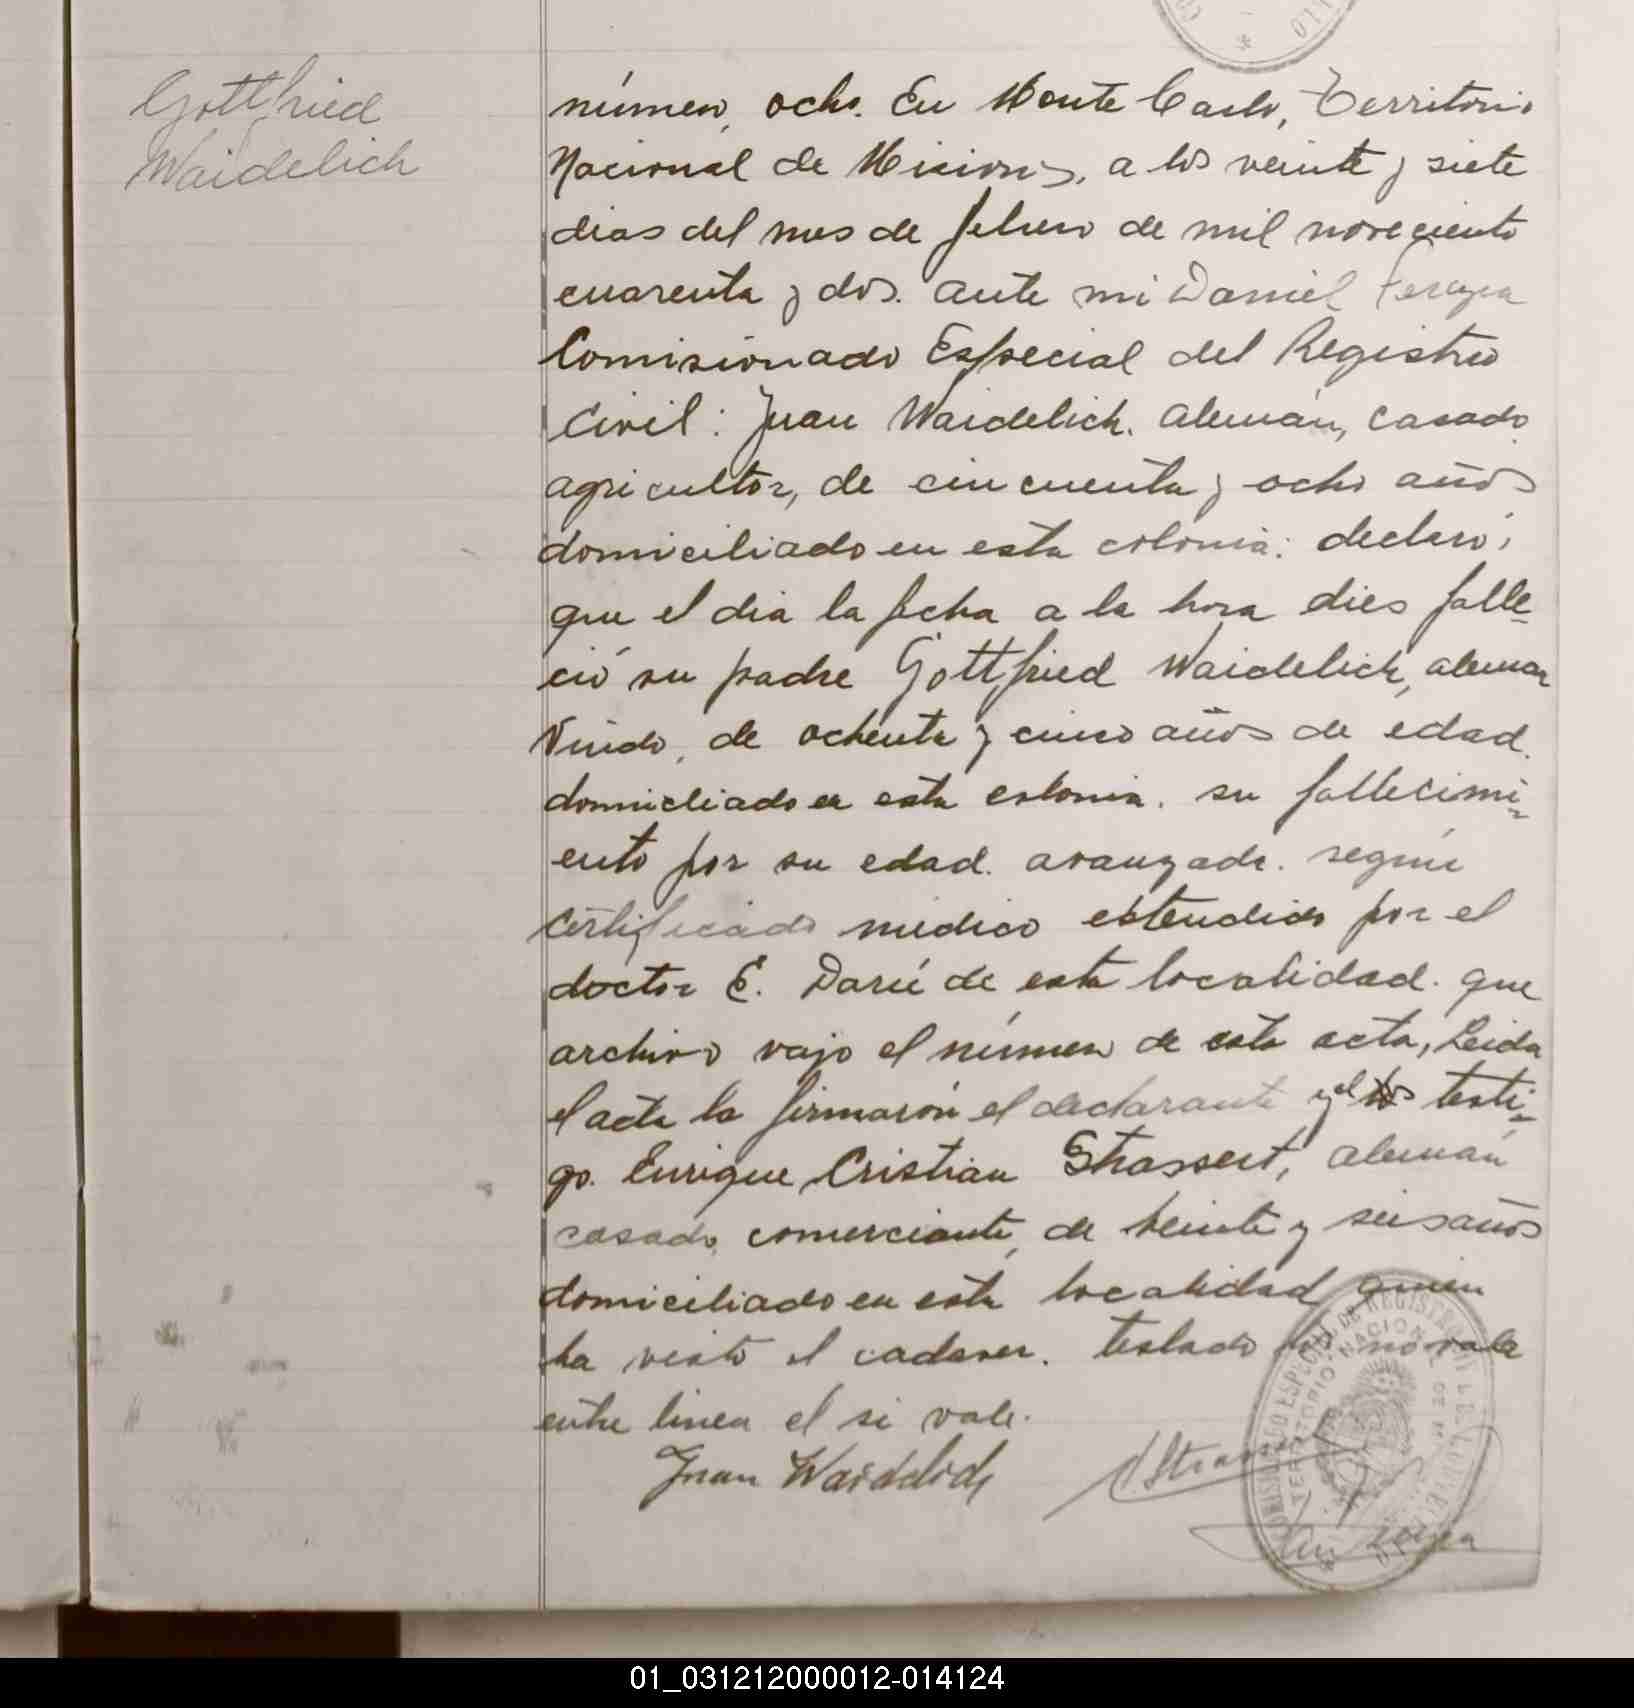 Gottfried
Waidelich
número, ocho. En Monte Carlo, Territorio
Nacional de Misiones, a los veinte y siete
dias del mes de febrero de mil noveciento
cuarenta y dos. ante mi Daniel
Comisionado Especial del Registro
Civil: Juan Waidelich. alemán, casado
agricultor, de cincuenta y ocho años
domiciliado en esta colonia: declaró;
que el dia la fecha a la hora dies falle-
ció su padre Gottfried Waidelich, aleman
Viudo, de ochenta y cinco años de edad.
domicliado en esta colonia. su fallecimi-
ento por su edad. avanzada. según
certificado médico estendido por el
doctor E. Darú de esta localidad. que
archivo vajo el número de esta acta, Leida
el acta la firmarón el declarante y el los testi-
go. Enrique Cristian Strassert, alemán
casado, comerciante, de veinte y seis años
domiciliado en esta localidad quien
ha visto el cadaver. testado los no vale
entre linea el si vale.
Juan Waidelich
COMISIONADO ESPECIAL DE REGISTRO CIVIL
TERRITORIO NACIONAL DE
01_031212000012-014124